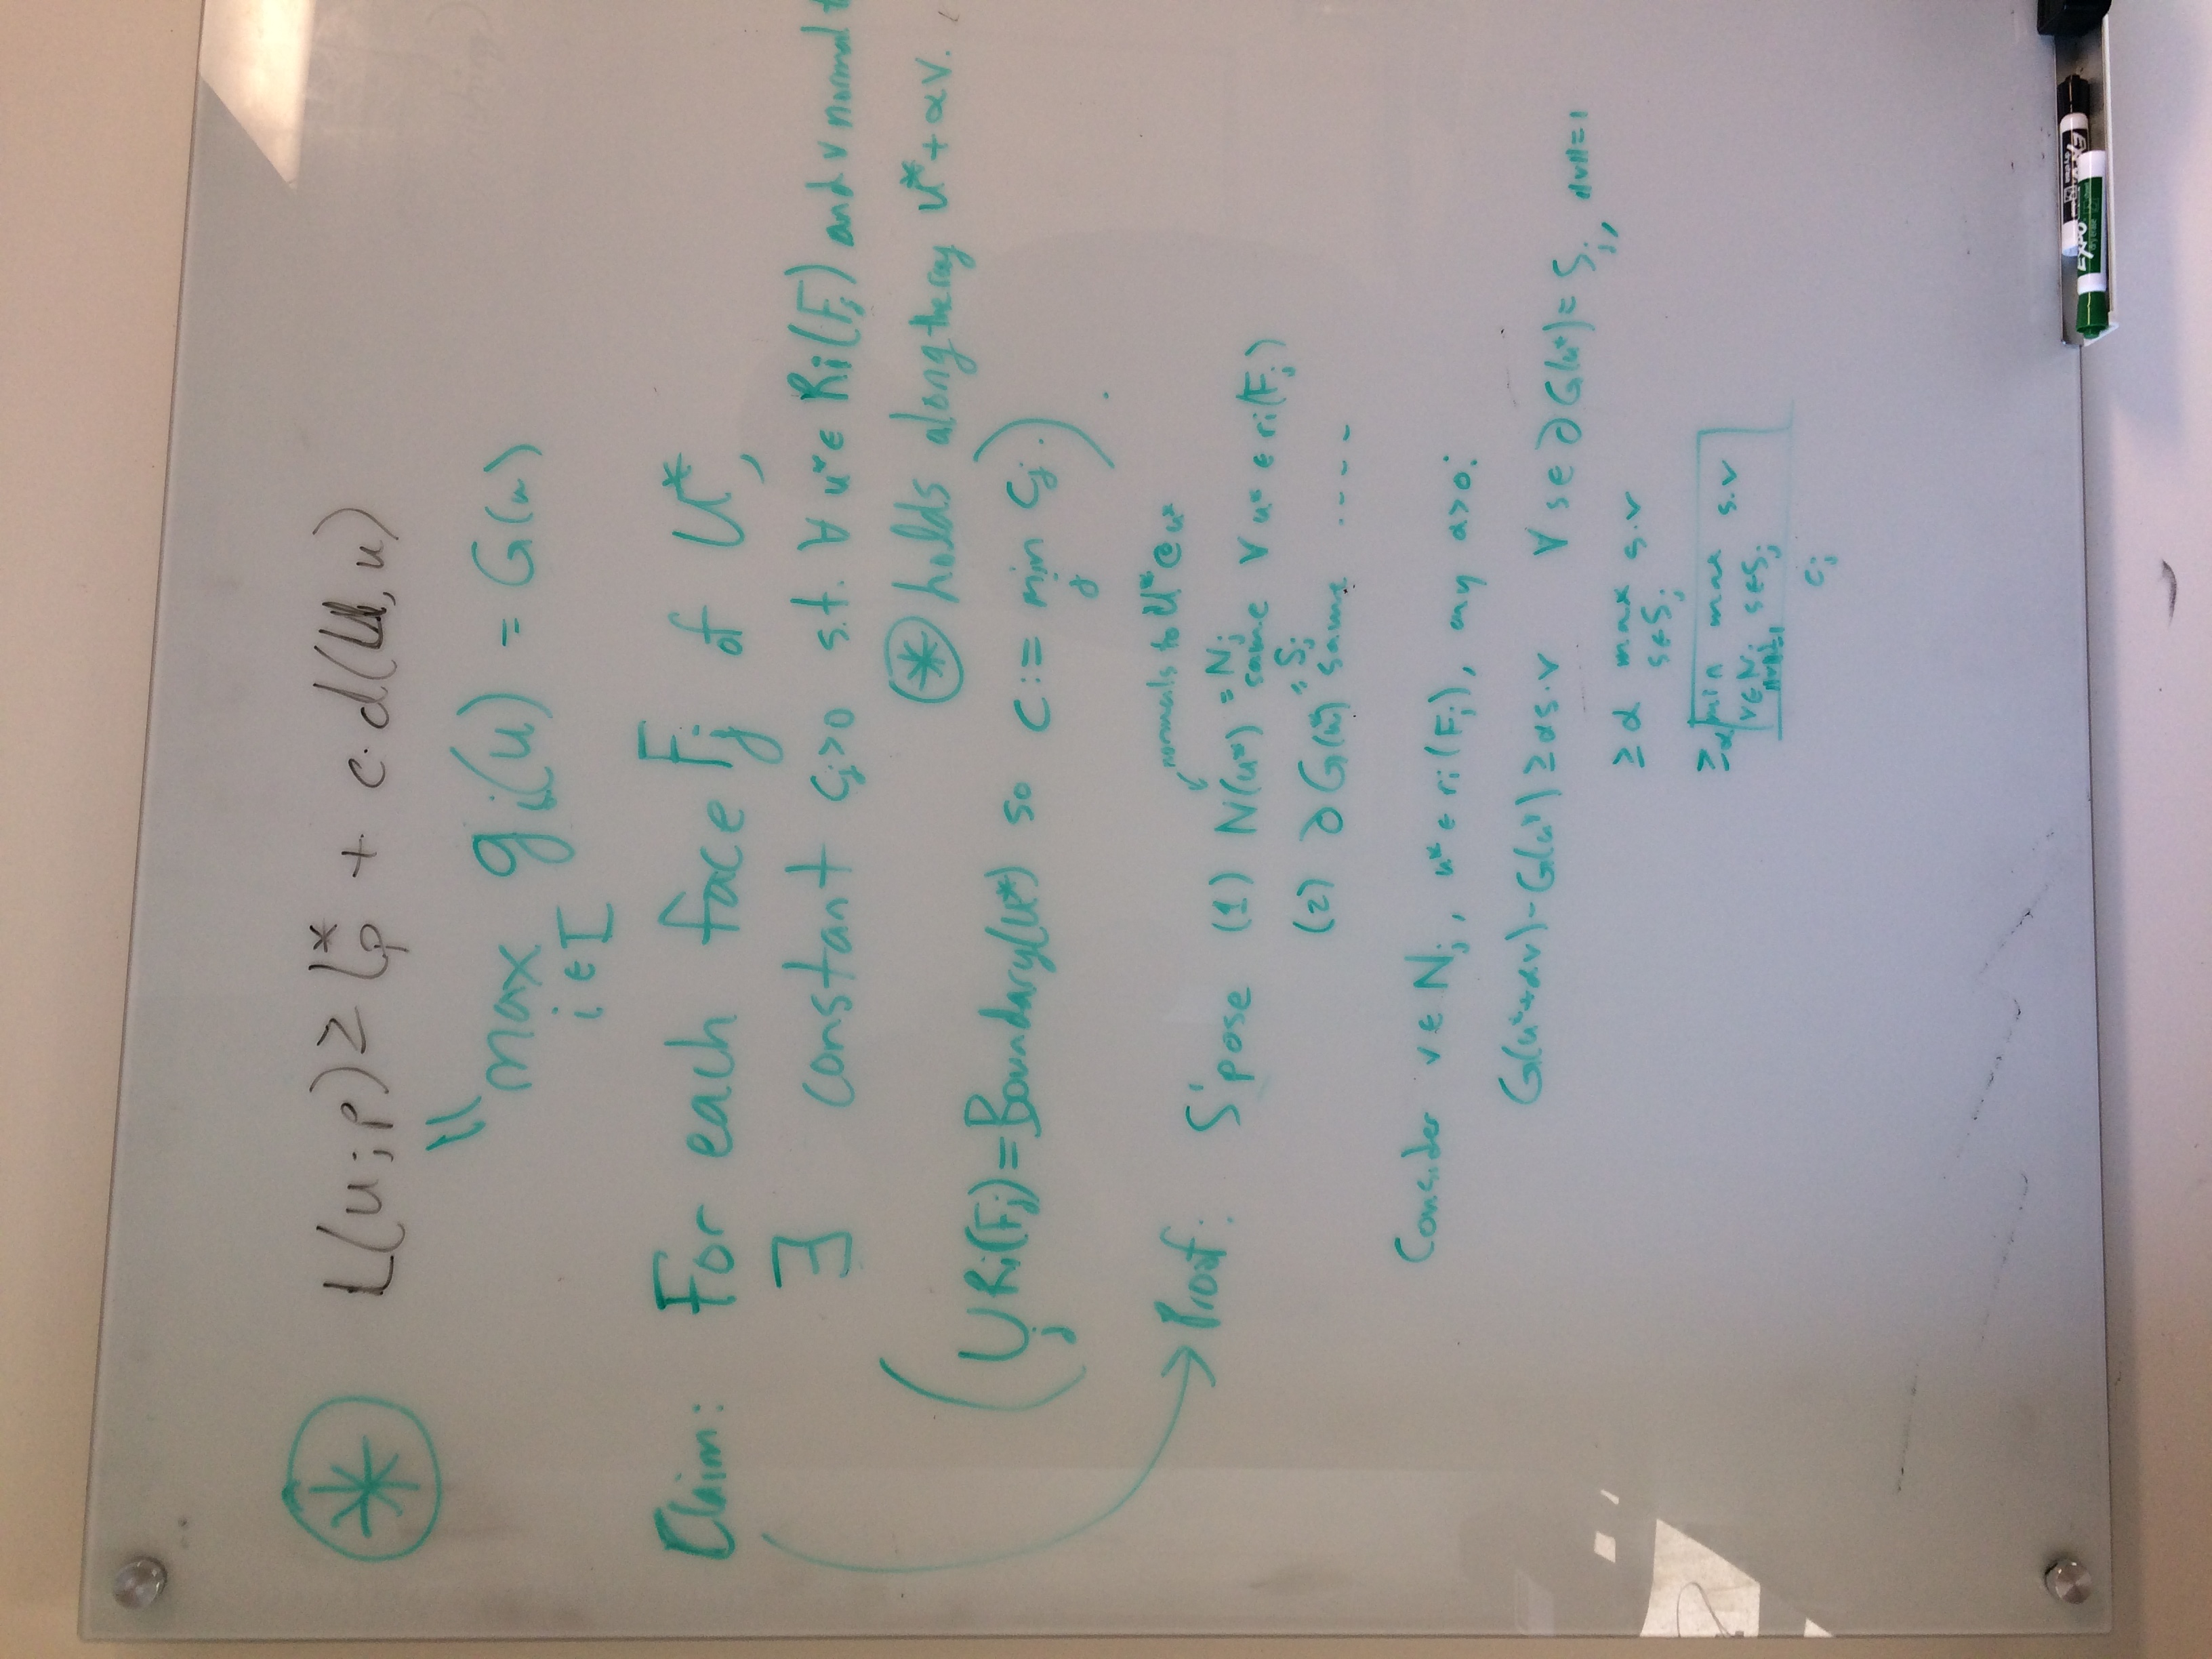 * L(u;p) ≥ L*_p + c·d(U, u)
"
max_{i∈I} g_i(u) = G(u)
Claim: For each face F_j of U*,
∃ constant c_j>0 s.t. ∀ u* ∈ Ri(F_j) and v normal
* holds along the ray u* + αv.
(∪_j Ri(F_j) = Boundary(U*) so c := min_j c_j.).
normals to U* @ u*
Proof: S'pose (1) N(u*) = N_j same ∀ u* ∈ ri(F_j)
(2) ∂G(u*) = S_j same ----
Consider v ∈ N_j, u* ∈ ri(F_j), any α>0:
G(u*+αv) - G(u*) ≥ αs·v ∀ s ∈ ∂G(u*) = S_j, ||v||=1
≥ α max_{s∈S_j} s·v
≥ α min_{v∈N_j ||v||=1} max_{s∈S_j} s·v
c_j
EXPO
dry erase